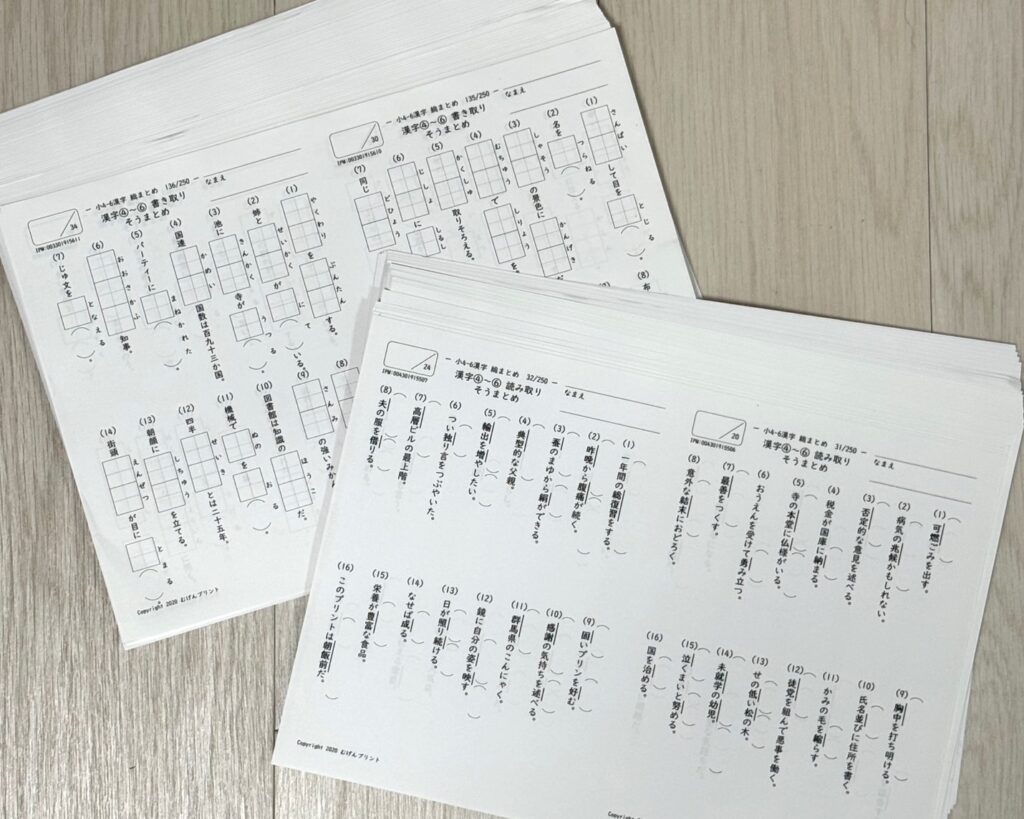 ― 小4-6漢字 総まとめ 135/250 ―
漢字④〜⑥ 書き取り
そうまとめ
なまえ
30
IPM:003301915610
(1) さんぱい して目を とじる 。
(2) 名を つらねる 。
(3) しゃそう の景色に かんげき
(4) むちゅう で しりょう を
(5) かくしゅ 取りそろえる。
(6) じしょ に しるし
(7) 同じ どひょう
(8) 布
― 小4-6漢字 総まとめ 136/250 ―
漢字④〜⑥ 書き取り
そうまとめ
なまえ
34
IPM:003301915611
(1) やくわり を ぶんたん する。
(2) 姉と せいかく が に て いる。
(3) 池に きんかく 寺が うつる 。
(4) 国連 かめい 国数は百九十三か国。
(5) パーティーに まねかれた 。
(6) おおさかふ 知事。
(7) じゅ文を となえる 。
(8)
(9) さんみ の強いみか
(10) 図書館は知識の ほうこ だ。
(11) 機械で ぬの を おる 。
(12) 四半 せいき とは二十五年。
(13) 朝顔に しちゅう を立てる。
(14) 街頭 えんぜつ が目に とまる 。
Copyright 2020 むげんプリント
― 小4-6漢字 総まとめ 31/250 ―
漢字④〜⑥ 読み取り
そうまとめ
なまえ
20
IPM:004301919506
(1) 可燃ごみを出す。
(2) 病気の兆候かもしれない。
(3) 否定的な意見を述べる。
(4) 税金が国庫に納まる。
(5) 寺の本堂に仏様がいる。
(6) おうえんを受けて勇み立つ。
(7) 最善をつくす。
(8) 意外な結末におどろく。
(9) 胸中を打ち明ける。
(10) 氏名並びに住所を書く。
(11) かみの毛を縮らす。
(12) 徒党を組んで悪事を働く。
(13) せの低い松の木。
(14) 未就学の幼児。
(15) 泣くまいと努める。
(16) 国を治める。
Copyright 2020
― 小4-6漢字 総まとめ 32/250 ―
漢字④〜⑥ 読み取り
そうまとめ
なまえ
24
IPM:004301919507
(1) 一年間の総復習をする。
(2) 昨晩から腹痛が続く。
(3) 蚕のまゆから絹ができる。
(4) 典型的な父親。
(5) 輸出を増やしたい。
(6) つい独り言をつぶやいた。
(7) 高層ビルの最上階。
(8) 夫の服を借りる。
(9) 固いプリンを好む。
(10) 感謝の気持ちを述べる。
(11) 群馬県のこんにゃく。
(12) 鏡に自分の姿を映す。
(13) 日が照り続ける。
(14) なせば成る。
(15) 栄養が豊富な食品。
(16) このプリントは朝飯前だ。
Copyright 2020 むげんプリント